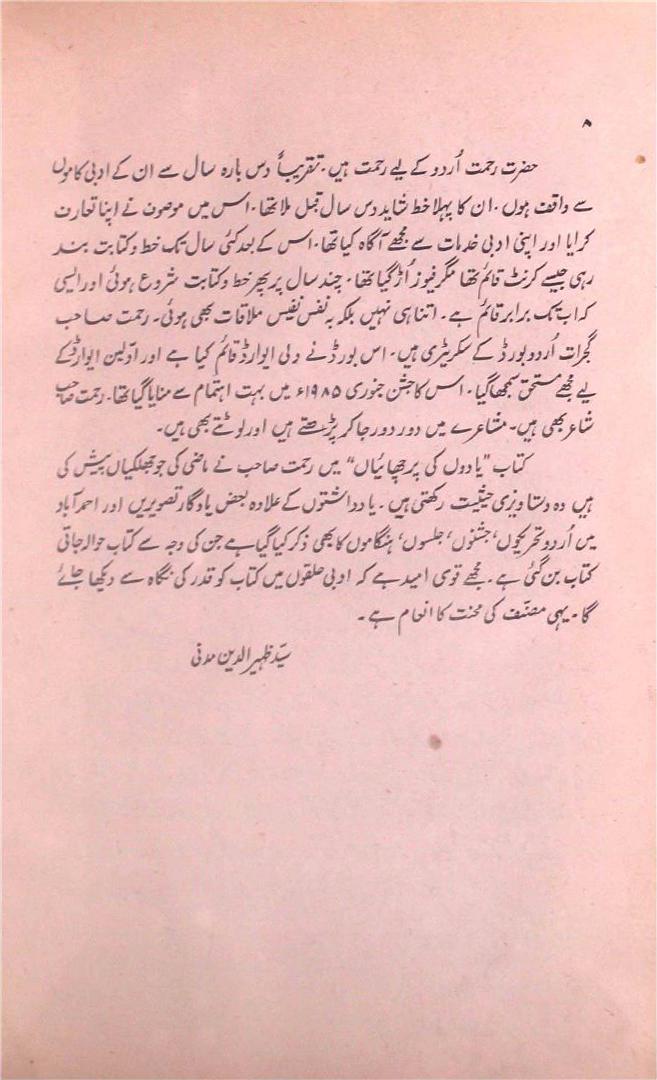 ۸
حضرت رحمت اُردو کے لیے رحمت ہیں۔ تقریباً دس بارہ سال سے ان کے ادبی کاموں
سے واقف ہوں۔ ان کا پہلا خط شاید دس سال قبل ملا تھا۔ اس میں موصوف نے اپنا تعارف
کرایا اور اپنی ادبی خدمات سے مجھے آگاہ کیا تھا۔ اس کے بعد کئی سال تک خط و کتابت بند
رہی جیسے کرنٹ قائم تھا مگر فیوز اُڑ گیا تھا۔ چند سال پر پھر خط و کتابت شروع ہوئی اور ایسی
کہ اب تک برابر قائم ہے۔ اتنا ہی نہیں بلکہ بہ نفس نفیس ملاقات بھی ہوئی۔ رحمت صاحب
گجرات اُردو بورڈ کے سکریٹری ہیں۔ اس بورڈ نے ولی ایوارڈ قائم کیا ہے اور اوّلین ایوارڈ کے
لیے مجھے مستحق سمجھا گیا۔ اس کا جشن جنوری ۱۹۸۵ء میں بہت اہتمام سے منایا گیا تھا۔ رحمت صاحب
شاعر بھی ہیں۔ مشاعرے میں دور دور جا کر پڑھتے ہیں اور لوٹتے بھی ہیں۔
کتاب "یادوں کی پرچھائیاں" میں رحمت صاحب نے ماضی کی جو جھلکیاں پیش کی
ہیں وہ دستاویزی حیثیت رکھتی ہیں۔ یادداشتوں کے علاوہ بعض یادگار تصویریں اور احمد آباد
میں اُردو تحریکوں، جشنوں، جلسوں، ہنگاموں کا بھی ذکر کیا گیا ہے جن کی وجہ سے کتاب حوالہ جاتی
کتاب بن گئی ہے۔ مجھے قوی امید ہے کہ ادبی حلقوں میں کتاب کو قدر کی نگاہ سے دیکھا جائے
گا۔ یہی مصنّف کی محنت کا انعام ہے۔
سیّد ظہیر الدین مدنی